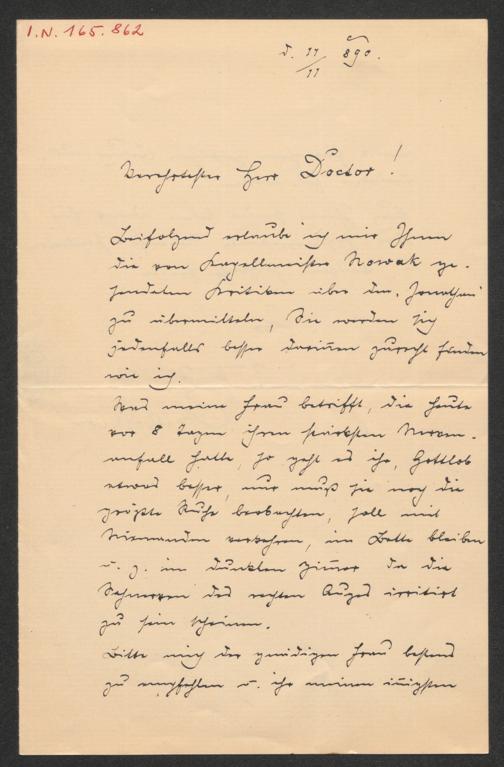 I.N. 165.862
d. 11/11 890.
Verehrtester Herr Doctor!
Beifolgend erlaube ich mir Ihnen
die von Kapellmeister Nowak ge-
sendeten Kritiken über den "Jonathan"
zu übermitteln, Sie werden sich
jedenfalls besser darinnen zurecht finden
wie ich.
Was meine Frau betrifft, die heute
vor 8 Tagen ihren stärksten Nerven-
anfall hatte, so geht es ihr, Gottlob
etwas besser, nur muß sie noch die
größte Ruhe beobachten, soll mit
Niemanden verkehren, im Bette bleiben
u. z. im dunklen Zimmer da die
Nerven des rechten Auges irritirt
zu sein scheinen.
Bitte mich der gnädigen Frau bestens
zu empfehlen u. ihr meinen innigsten